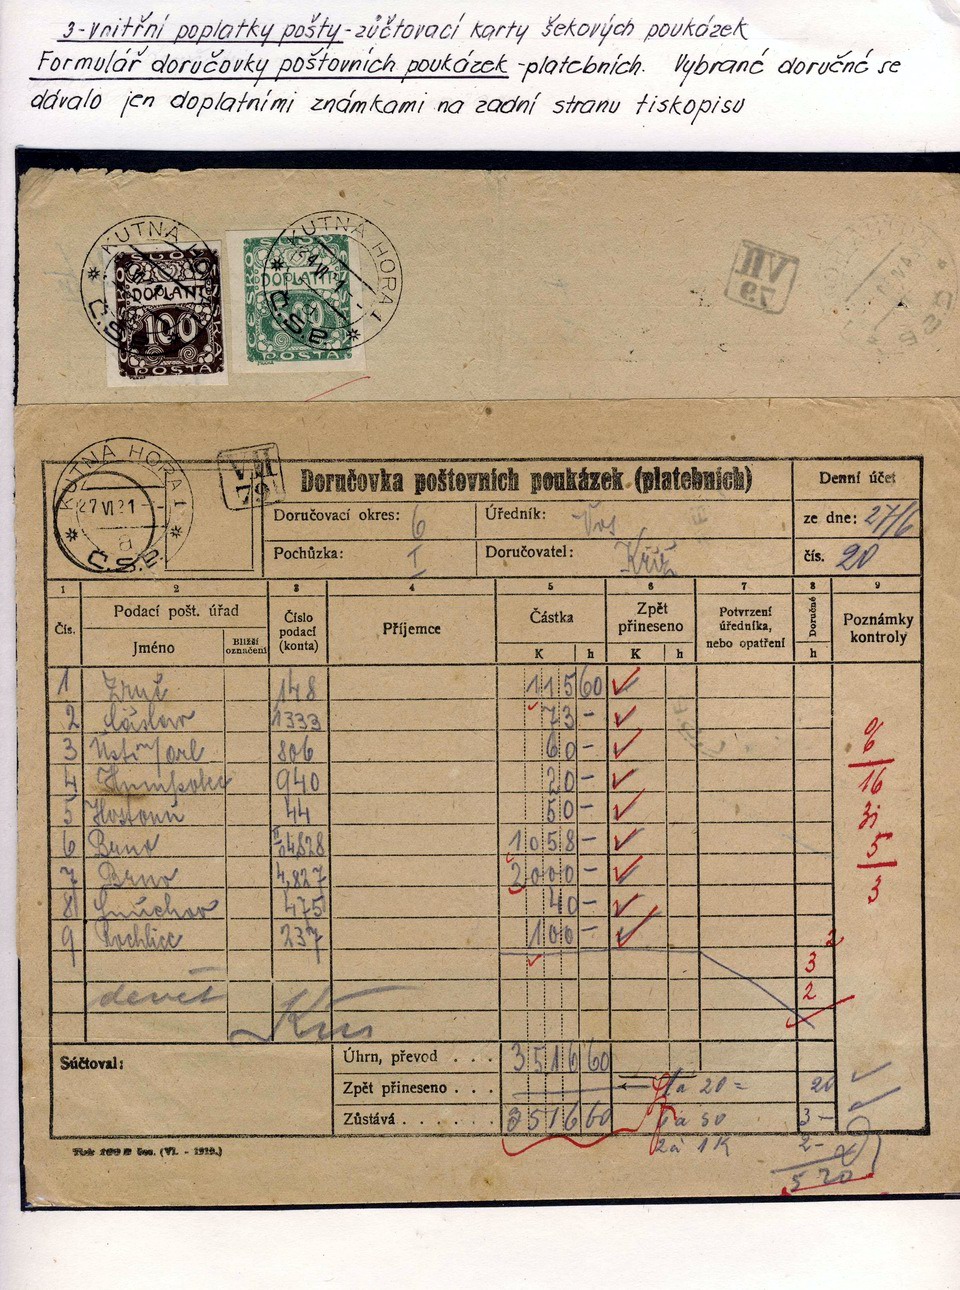 3-vnitřní poplatky pošty-zúčtovací karty šekových poukázek
Formulář doručovky poštovních poukázek-platebních. Vybrané doručné se
dávalo jen doplatními známkami na zadní stranu tiskopisu
KUTNÁ
Č.S.P.
DOPLANIT
100
POŠTA
KUTNÁ HORA 1
Č.S.P.
DOPLANIT
POŠTA
VII
79
KUTNÁ HORA 1
27 VI 21
8
Č.S.P.
VII
79
Doručovka poštovních poukázek (platebních)
Denní účet
Doručovací okres: 6
Úředník:
ze dne: 27/6
Pochůzka: I
Doručovatel: Kříž
čís. 20
1 2 3 4 5 6 7 8 9
Čís.
Podací pošt. úřad
Jméno
Bližší označení
Číslo podací (konta)
Příjemce
Částka
K h
Zpět přineseno
K h
Potvrzení úředníka, nebo opatření
Doručné
h
Poznámky kontroly
1 148 115 60
2 Čáslav 1333 73 –
3 Ústí n/orl 806 60 –
4 Humpolec 940 20 –
5 44 50 –
6 Brno 4828 1058 –
7 Brno 4,827 2000 –
8 475 40 –
9 Rochlice 237 100 –
6
16
31
5
3
2
3
2
devět
Súčtoval:
Úhrn, převod . . . 3516 60
Zpět přineseno . . .
Zůstává . . . . . . 3516 60
za 20 = 20
za 50 3 –
za 1K 2 –
5 20
Tisk 100 B čes. (VI. - 1919.)